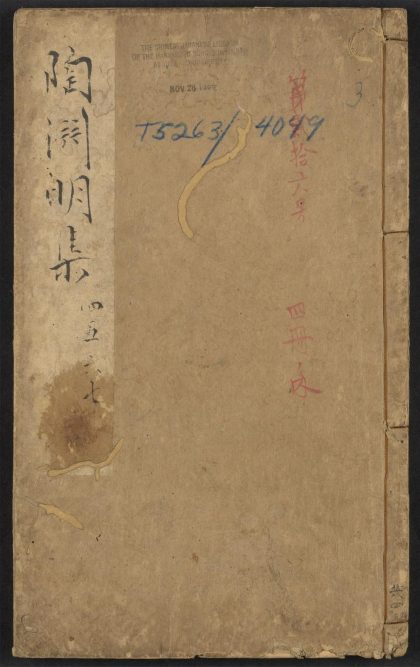 陶淵明集
四五六七
THE CHINESE-JAPANESE LIBRARY
OF THE HARVARD-YENCHING INSTITUTE
AT HARVARD UNIVERSITY
NOV 26 1942
T5263/4049
3
拾六号
四冊